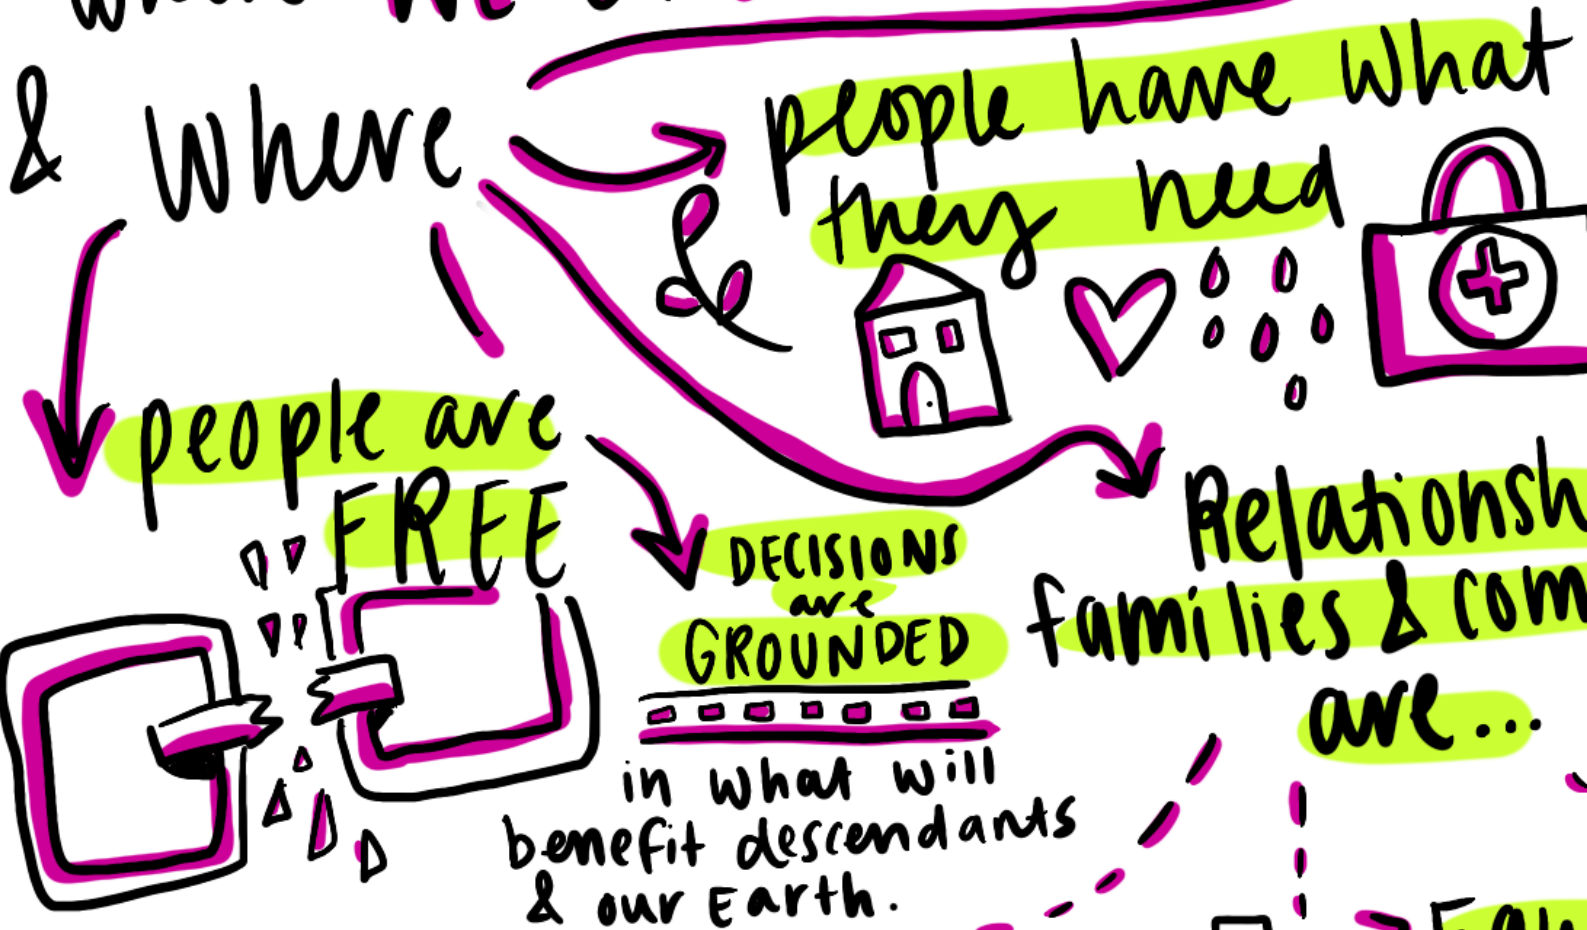 & where
people have what
they need
people are
FREE
DECISIONS
are
GROUNDED
in what will
benefit descendants
& our Earth.
Relationsh
families & com
are...